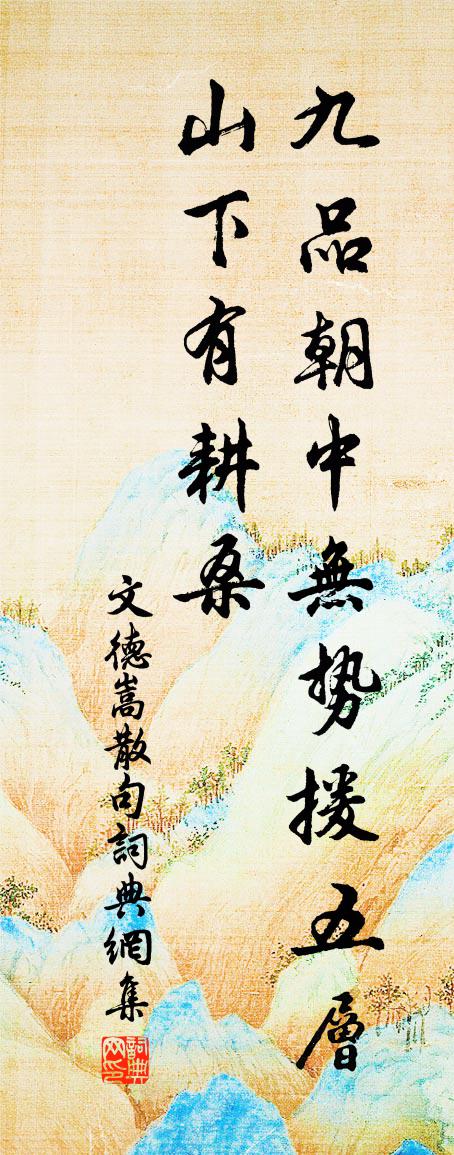 九品朝中無势援五層
山下有耕桑
文德嵩散句詞典網集
詞典
网印